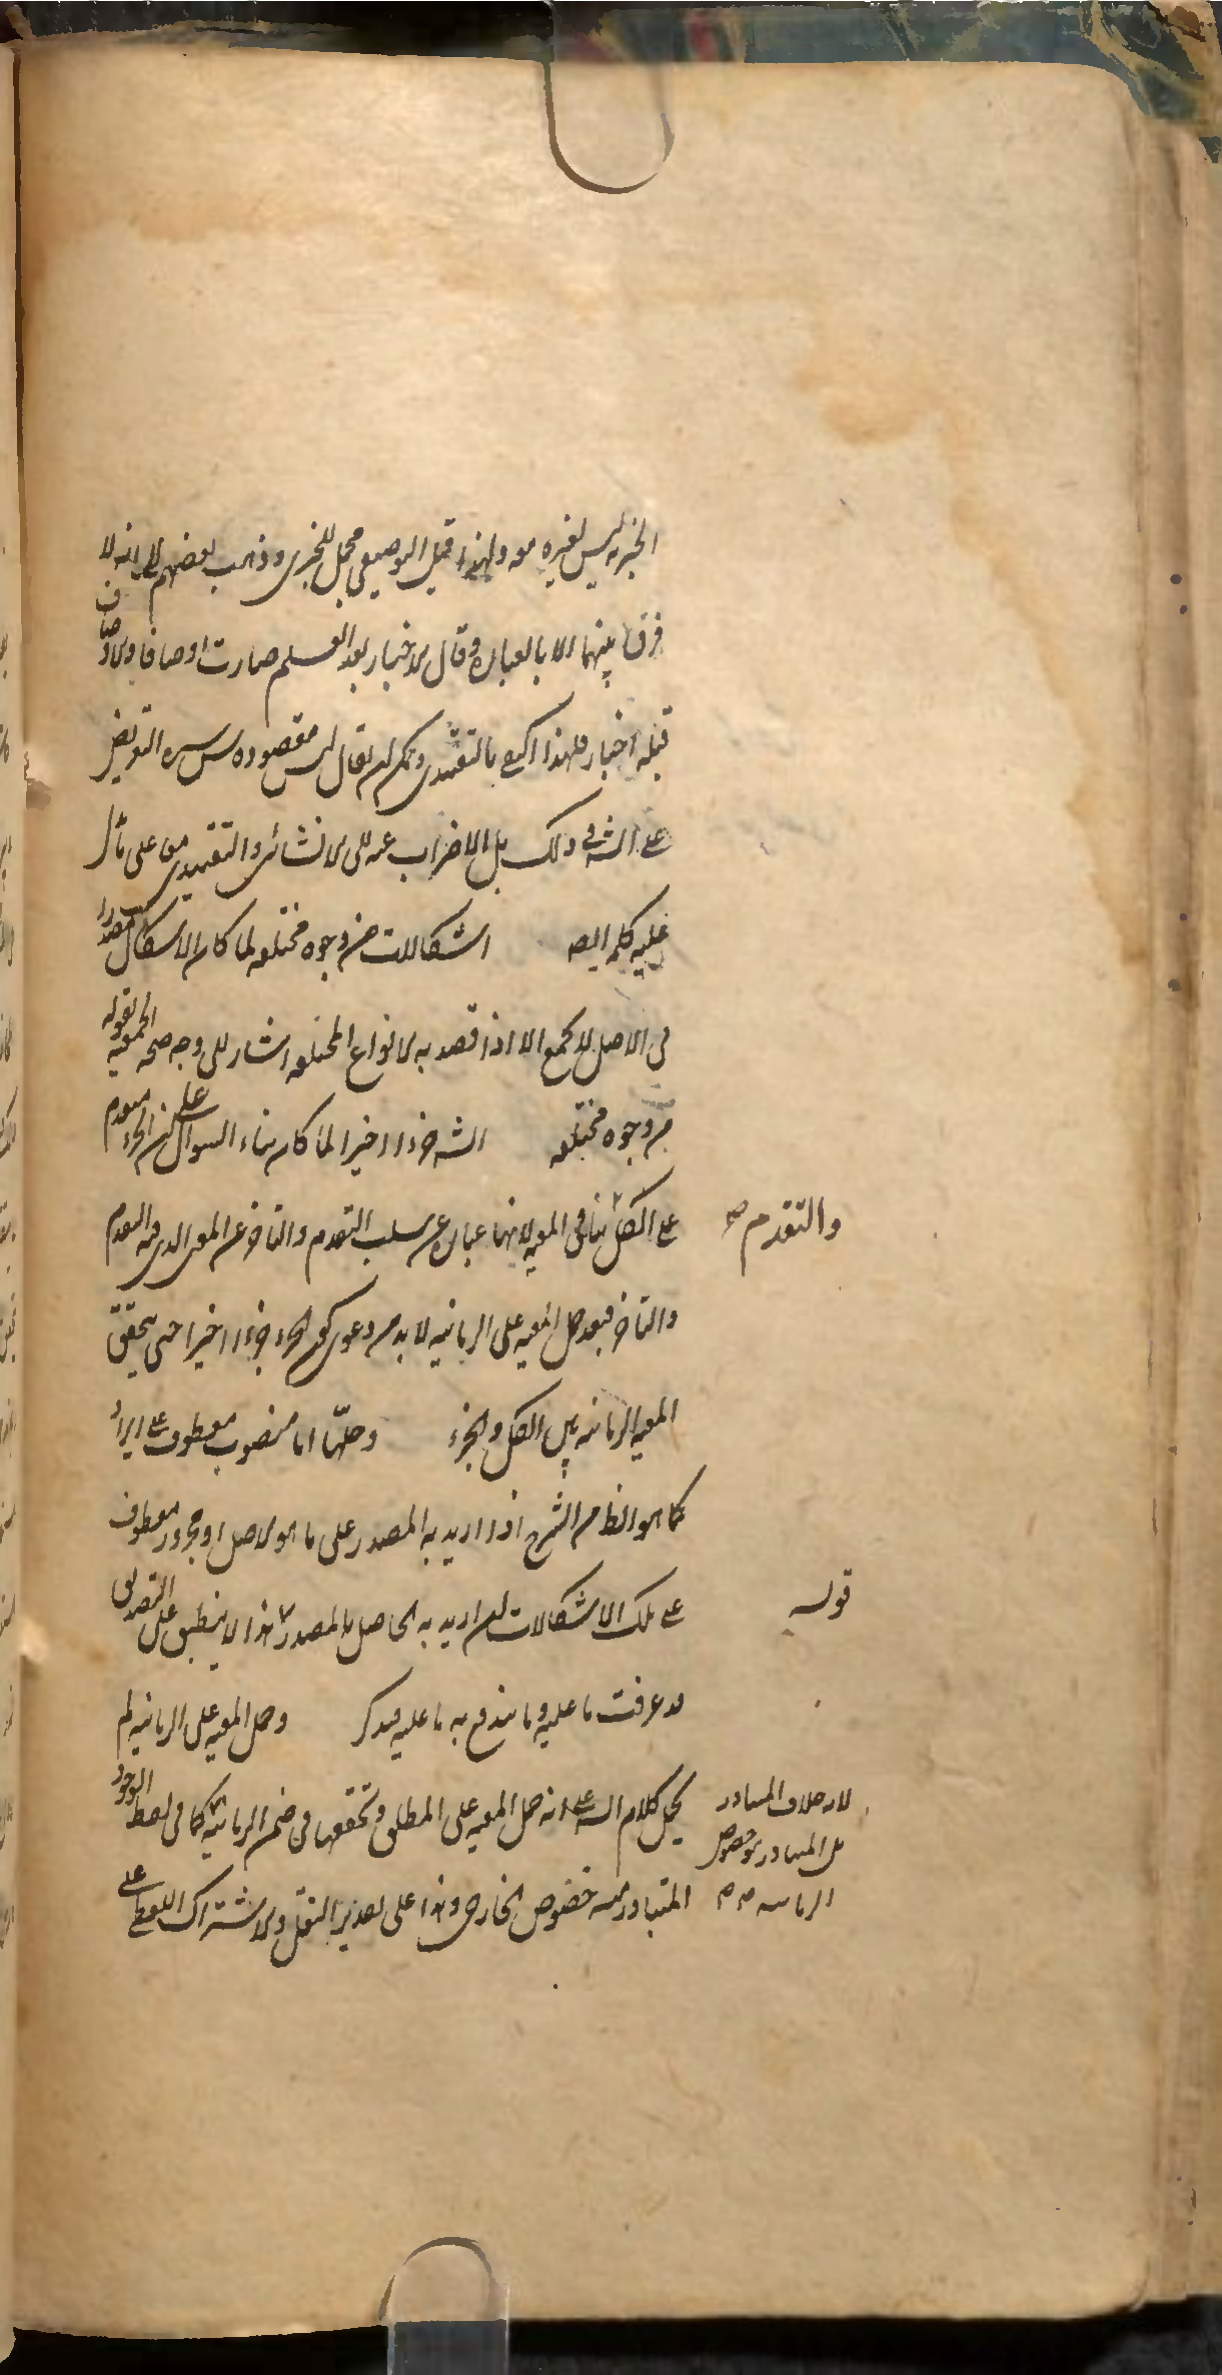 الخبر ليس لغيره معه ولهذا قيل التوصيفي محمل للخبري وذهب بعضهم الى انه لا
فرق بينهما الا بالعبارة وقال الاخبار بعد العلم صارت اوصافا والاوصاف
قبله اخبار فلهذا اكتفى بالتقييدي ويمكن ان يقال ليس مقصوده التعريض
على الش في ذلك بل الاضراب عنه الى الانشائي والتقييدي على
عليه كلمة ايضه اشكالات من وجوه مختلفه لما كان الاشكال مصدرا
في الاصل لا يجمع الا اذا قصد به الانواع المختلفه اشار الى وجه صحة الجمعية بقوله
من وجوه مختلفه الش جزءا اخيرا لما كان بناء السوال على ان الجزء مقدم
على الكل والتقدم ينافي المعيه لانها عبارة عن سلب التقدم والتاخر عن المعنى الذى فيه التقدم
والتاخر فبعد حمل المعيه على الزمانيه لا بد من دعوى كون الجزء جزءا اخيرا حتى يتحقق
المعيه الزمانيه بين الكل والجزء وحلها اما منصوب معطوف على ايراد
كما هو الظ من الشرح اذا اريد به المصدر على ما هو الاصل او مجرور معطوف
على تلك الاشكالات ان اريد به الحاصل بالمصدر قوله هذا لا ينطبق على التصديق
قد عرفت ما عليه وما يندفع به ما عليه فتذكر وحمل المعيه على الزمانيه لم
يحمل كلام الش على انه حمل المعيه على المطلق وتحققها في ضمن الزمانيه كما في لفظ الوجود
لانه خلاف المتبادر
بل المتبادر هو خصوص
الزمانيه
المتبادر منه خصوص الخارجي وهذا على تقدير النقل والاشتراك اللفظي على